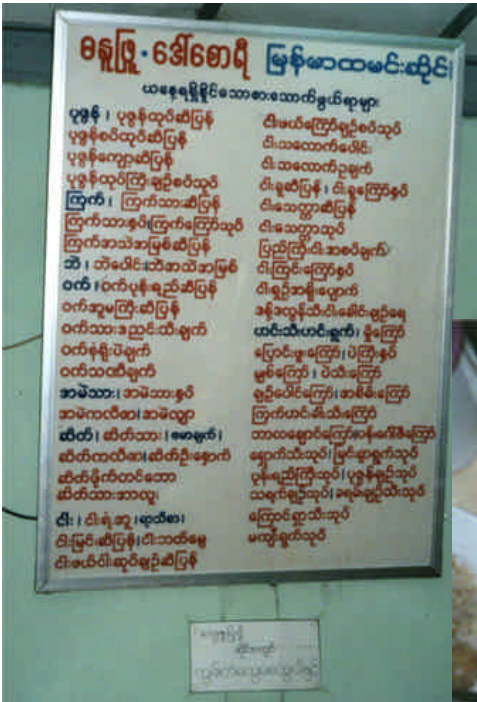 ဓနုဖြူ • ဒေါ်စောရီ မြန်မာထမင်းဆိုင်၊
ယနေ့ရရှိနိုင်သောစားသောက်ဖွယ်ရာများ
ပုဇွန်၊ ပုဇွန်ထုပ်ဆီပြန်
ပုဇွန်စပ်ထုပ်ဆီပြန်
ပုဇွန်ကျော့ဆီပြန်
ပုဇွန်ထုပ်ကြီးချဉ်စပ်သုပ်
ကြက်၊ ကြက်သားဆီပြန်
ကြက်သားနှပ်၊ ကြက်ကြော်သုပ်
ကြက်အသဲအမြစ်ဆီပြန်
ဘဲ၊ ဘဲပေါင်း၊ ဘဲအသဲအမြစ်
ဝက်၊ ဝက်ပုန်းရည်ဆီပြန်
ဝက်အူမကြီးဆီပြန်
ဝက်သားဒညင်းသီးချက်
ဝက်နံရိုးပဲချက်
ဝက်သဏီချက်
အမဲသား၊ အမဲသားနှပ်
အမဲကလီစာ၊ အမဲလျှာ
ဆိတ်၊ ဆိတ်သား၊ (စမာချက်)
ဆိတ်ကလီစာ၊ ဆိတ်ဦးနှောက်
ဆိတ်ဖိုက်တင်ဘော
ဆိတ်သားအာလူး
ငါး၊ ငါးရံ့အူ (ရာသီစာ)
ငါးမြင်းဆီပြန်၊ ငါးဘတ်မွှေ
ငါးဖယ်ပါးဆုပ်ချဉ်ဆီပြန်
ငါးဖယ်ကြော်ချဉ်စပ်သုပ်
ငါးသလောက်ပေါင်း
ငါးသလောက်ဥချက်
ငါးရူဆီပြန်၊ ငါးရူကြော်နှပ်
ငါးသေတ္တာဆီပြန်
ငါးသေတ္တာသုပ်
ပြည်ကြီးငါးအစပ်ချက်
ငါးကြင်းကြော်နှပ်
ငါးရှဉ့်အရိုးပျောက်
ဒန့်ဒလွန်သီးငါးခေါင်းချဉ်ရေ
ဟင်းသီးဟင်းရွက်၊ မှိုကြော်
ပြောင်းဖူးကြော်၊ ပဲကြီးနှပ်
မျှစ်ကြော်၊ ပဲသီးကြော်
ချဉ်ပေါင်ကြော်၊ အစိမ်းကြော်
ကြက်ဟင်းခါးသီးကြော်
ဘာလချောင်ကြော်
ရှောက်သီးသုပ်၊ မြင်းခွာရွက်သုပ်
ပုန်းရည်ကြီးသုပ်၊ ပုဇွန်ချဉ်သုပ်
သရက်ချဉ်သုပ်၊ ခရမ်းချဉ်သီးသုပ်
ကြောင်ရှာသီးသုပ်
မကျီးရွက်သုပ်